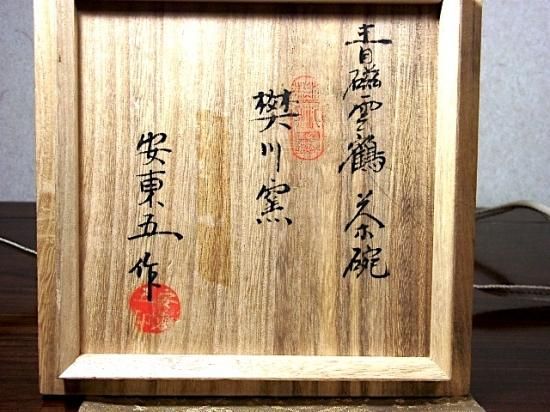 青磁雲鶴 茶碗
樊川窯
安東五作